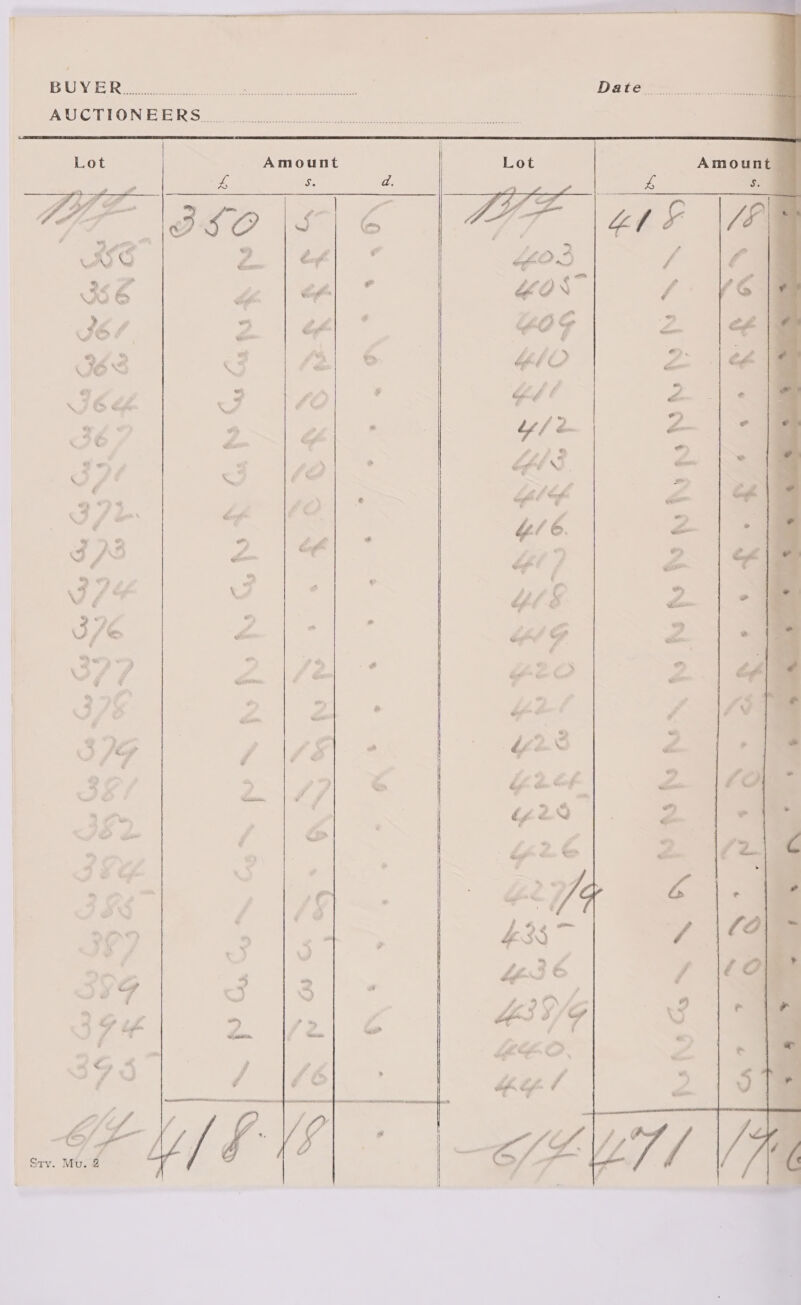 BUYER Date
AUCTIONEERS
Lot Amount
£ s. d.
B/F 350 5 6
355 2 4 "
356 4 4 "
361 2 4 "
363 3 12 6
364 3 10 "
367 2 4 "
371 3 10 "
372 4 10 "
373 2 4 "
374 3 " "
376 2 " "
377 2 12 "
378 2 2 "
379 1 18 "
381 2 17 6
382 1 6 "
384 3 " "
385 1 18 "
387 3 5 "
389 3 3 "
394 2 12 6
395 1 16 "
C/F 418 18 "
STY. MU. 2
Lot Amount
£ s.
B/F 418 18 "
403 1 8 "
405 1 16 "
409 2 4 "
410 2 4 "
411 2 " "
412 2 " "
413 2 " "
414 2 4 "
416 2 " "
417 2 4 "
418 2 " "
419 2 " "
420 2 4 "
421 1 18 "
423 2 " "
424 2 10 "
425 2 " "
426 2 12 6
427/9 6 " "
435 1 10 "
436 1 10 "
438/9 3 " "
440 2 " "
441 2 5 "
C/F 471 17 6